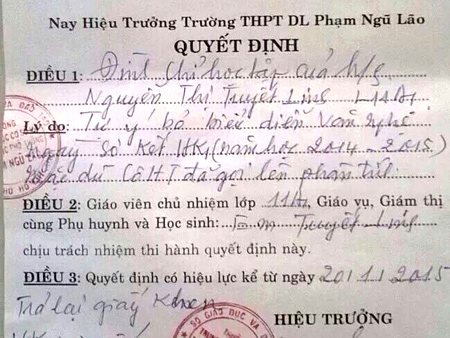 Nay Hiệu Trưởng Trường THPT DL Phạm Ngũ Lão
QUYẾT ĐỊNH
ĐIỀU 1: Đình chỉ học tập của h/s
Nguyễn Thị Truyết Linh L11A1
Lý do: Tự ý bỏ biểu diễn Văn nghệ
Ngày Sơ Kết HK1 (năm học 2014-2015)
Mặc dù Cô HT đã gọi lên phân tích
ĐIỀU 2: Giáo viên chủ nhiệm lớp 11A1, Giáo vụ, Giám thị
cùng Phụ huynh và Học sinh: Em Truyết Linh
chịu trách nhiệm thi hành quyết định này.
ĐIỀU 3: Quyết định có hiệu lực kể từ ngày 20/1/2015
Trả lại giấy Khen
HIỆU TRƯỞNG
SỞ GIÁO DỤC VÀ